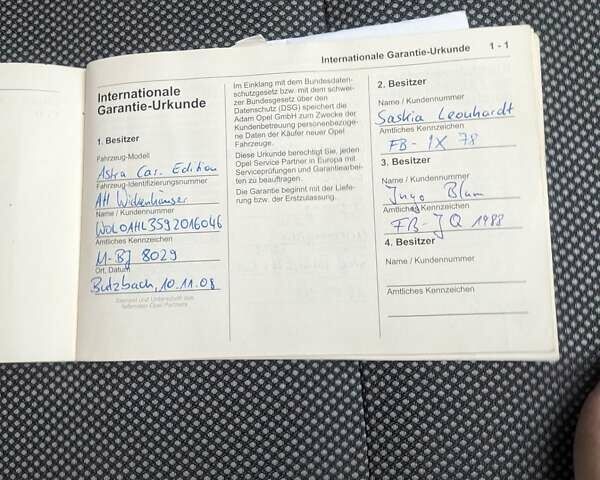 Internationale Garantie-Urkunde 1 - 1
Internationale
Garantie-Urkunde
1. Besitzer
Fahrzeug-Modell
Astra Car. Edition
Fahrzeug-Identifizierungsnummer
AH Wickenhäuser
Name / Kundennummer
W0L0AHL3592016046
Amtliches Kennzeichen
M-BJ 8029
Ort, Datum
Butzbach, 10.11.08
Stempel und Unterschrift des
liefernden Opel Partners
Im Einklang mit dem Bundesdaten-
schutzgesetz bzw. mit dem schwei-
zer Bundesgesetz über den
Datenschutz (DSG) speichert die
Adam Opel GmbH zum Zwecke der
Kundenbetreuung personenbezoge-
ne Daten der Käufer neuer Opel
Fahrzeuge.
Diese Urkunde berechtigt Sie, jeden
Opel Service Partner in Europa mit
Serviceprüfungen und Garantiearbei-
ten zu beauftragen.
Die Garantie beginnt mit der Liefe-
rung bzw. der Erstzulassung.
2. Besitzer
Name / Kundennummer
Saskia Leonhardt
Amtliches Kennzeichen
FB - IX 78
3. Besitzer
Name / Kundennummer
Ingo Blum
Amtliches Kennzeichen
FB-JQ 1988
4. Besitzer
Name / Kundennummer
Amtliches Kennzeichen